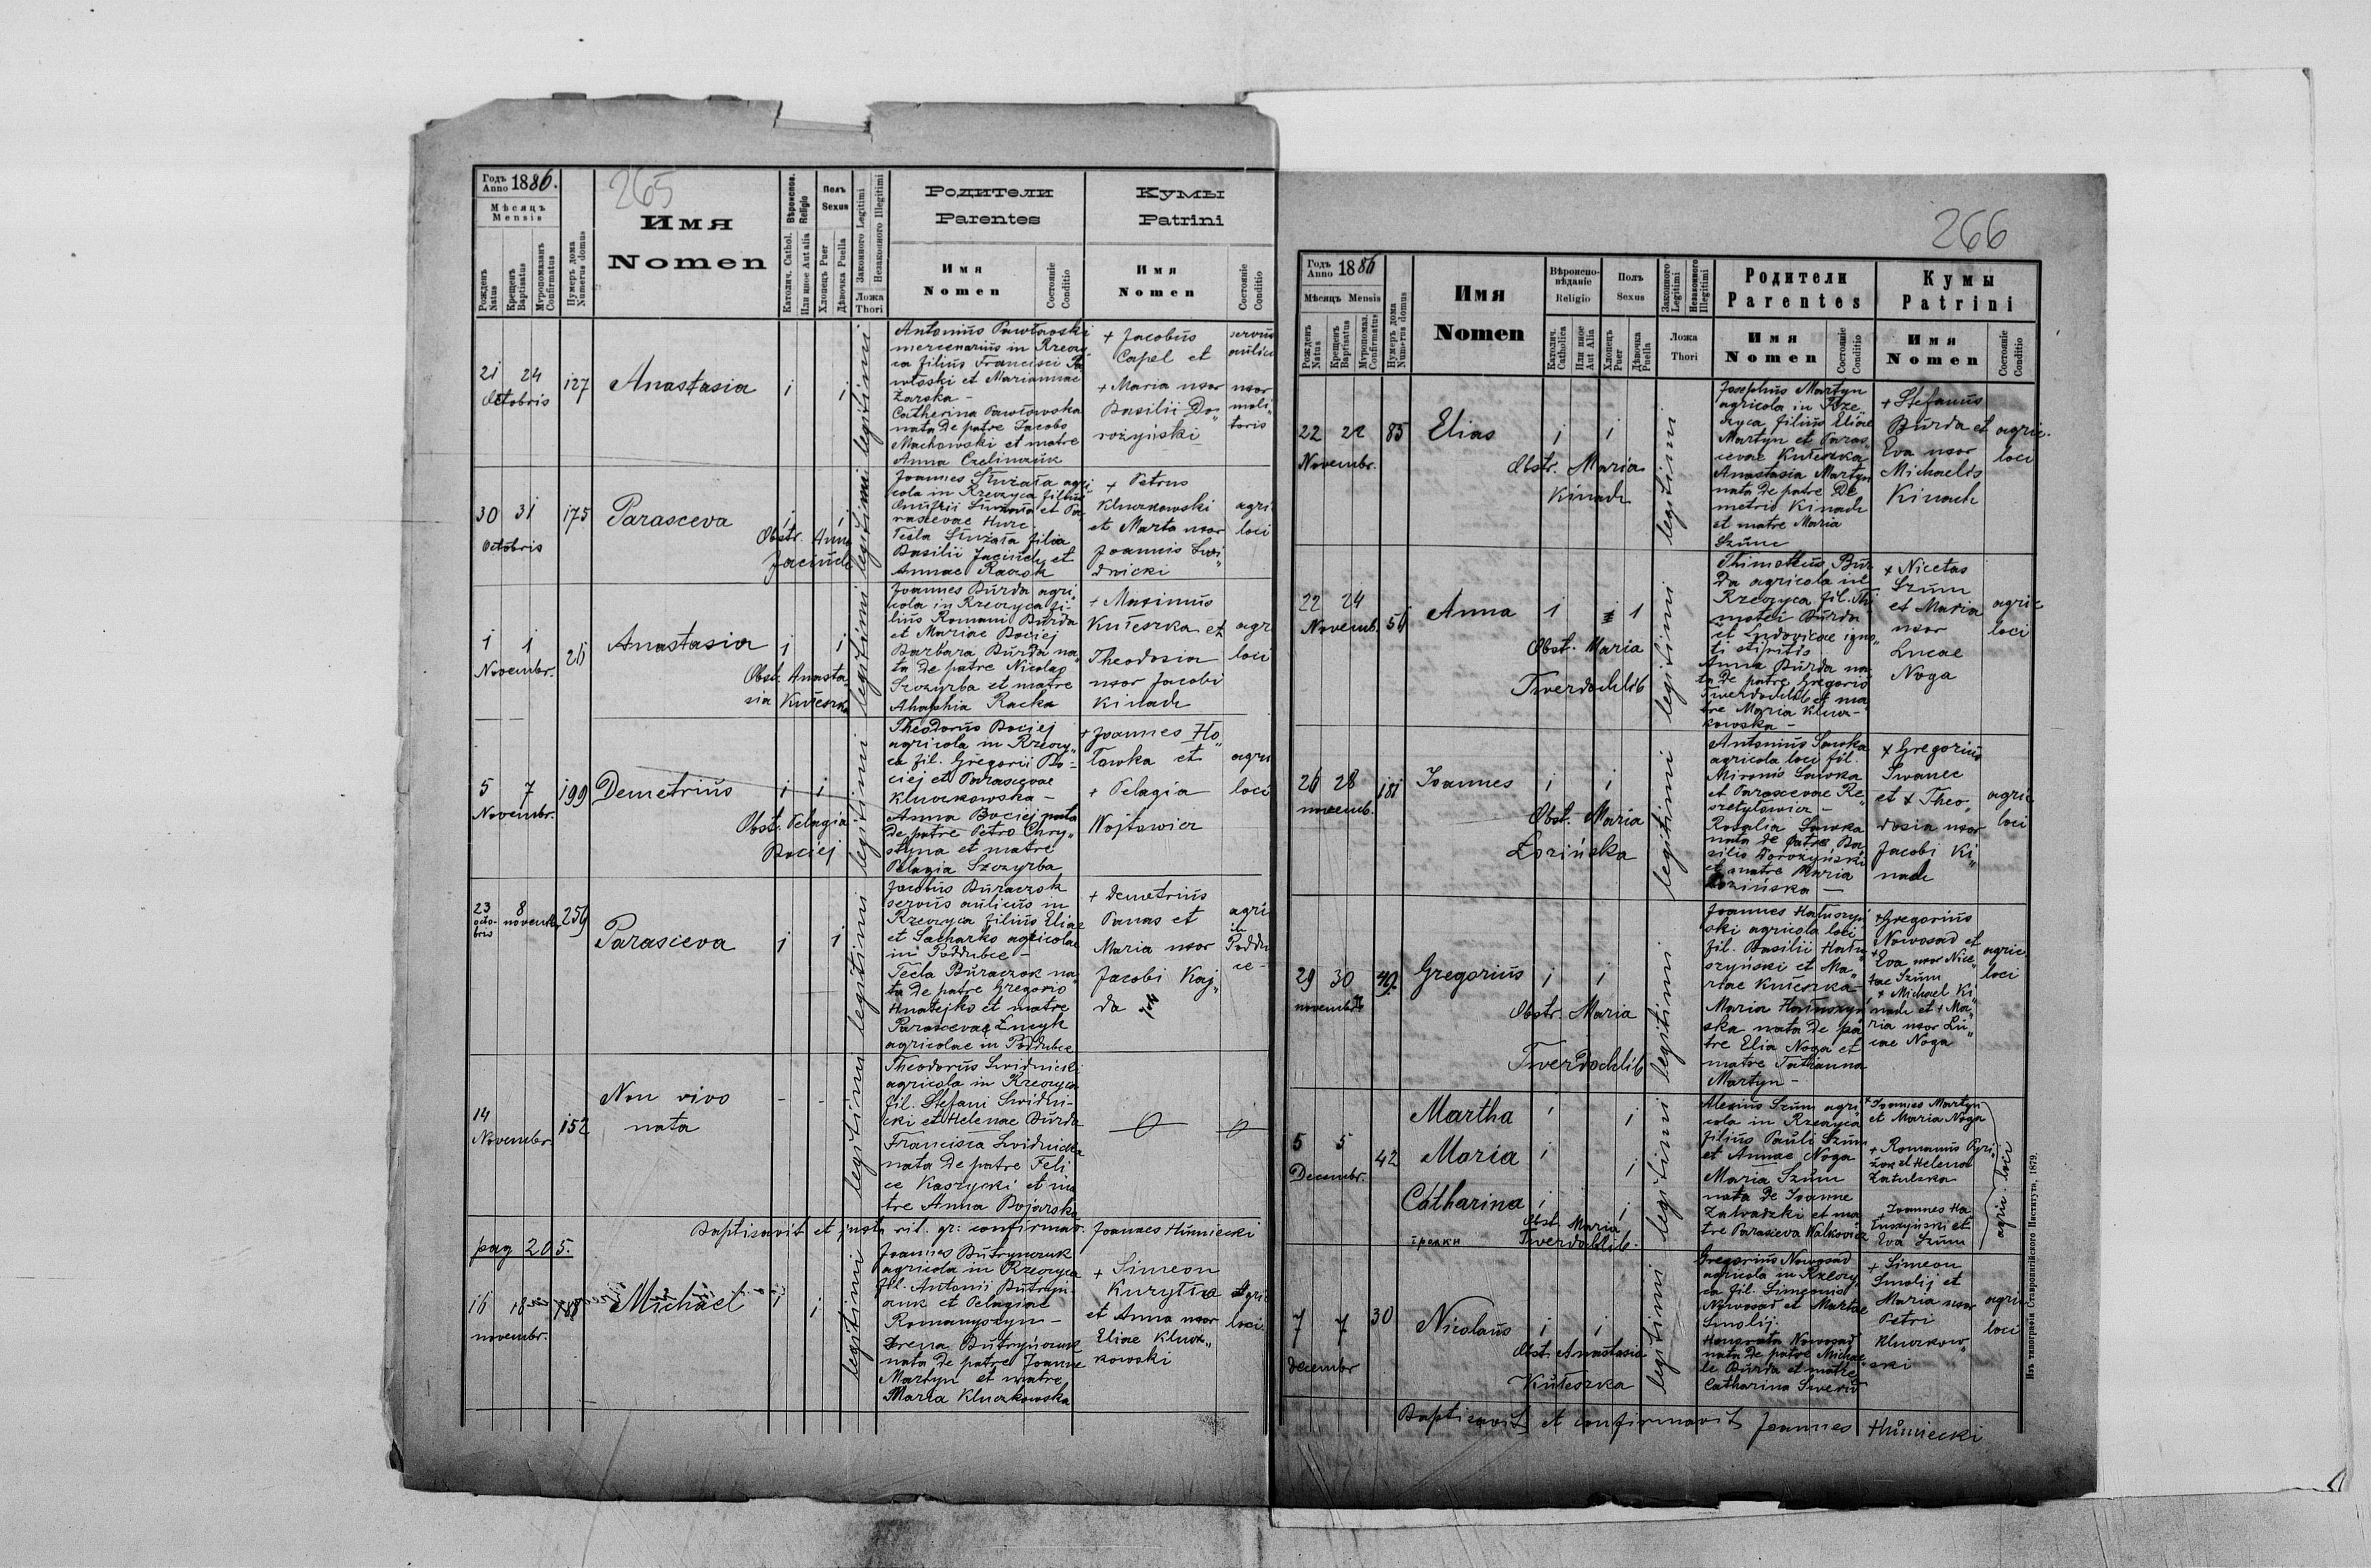 265
Годъ Anno 1886.
Мѣсяцъ Mensis
Рожденъ Natus
Крещенъ Baptisatus
Мѵропомазанъ Confirmatus
Нумеръ дома Numerus domus
Имя
Nomen
Вѣроисповѣд. Religio
Католич. Cathol.
Или иное Aut alia
Полъ Sexus
Хлопецъ Puer
Дѣвочка Puella
Законного Legitimi
Незаконного Illegitimi
Ложа Thori
Родители
Parentes
Имя Nomen
Состояніе Conditio
Кумы
Patrini
Имя Nomen
Состояніе Conditio
21 24 Octobris 127 Anastasia 1 1 legitimi
Antonius Pawłowski
mercenarius in Rzeczy
ca filius Francisci Pa
włoski et Mariannae
Żarska -
Catherina Pawłowska
nata de patre Jacobo
Machowski et matre
Anna Czelinczuk
+ Jacobus
Capel et
+ Maria uxor
Basilii Do„
rożyński
servus
aulicus
uxor
moli„
toris
30 31 Octobris 175 Parasceva 1 1 legitimi
Obstr. Anna
Jaciuch
cola in Rzeczyca filius
rascevae Hurc
Basilii Jaciuch et
+ Petrus
Kluczkowski
et Marta uxor
Joannis Swi„
dnicki
agri
loci
1 1 Novembr. 26 Anastasia 1 1 legitimi
Obst. Anasta-
sia Kułeszka
Joannes Burda agri
cola in Rzeczyca fi-
lius Romani Burda
et Mariae Bociej
Barbara Burda na„
ta de patre Nicolao
Szczyrba et matre
Ahaphia Racka
+ Maximus
Kułeszka et
Theodosia
uxor Jacobi
Kinach
agr
loci
5 7 Novembr. 199 Demetrius 1 1 legitimi
Obst. Pelagia
Bociej
Theodorus Bociej
agricola in Rzeczy„
ca fil. Gregorii Bo-
ciej et Parascevae
Kluczkowska -
Anna Bociej nata
de patre Petro Chry„
styna et matre
Pelagia Szczyrba
+ Joannes Ho„
łowka et
+ Pelagia
Wojtowicz
agri
loci
23 octobris 8 novembr. 259 Parasceva 1 1 legitimi
Jacobus Buraczok
servus aulicus in
Rzeczyca filius Eliae
et Sacharko agricolae
in Poddubce -
Tecla Buraczok na
ta de patre Gregorio
Hnatejko et matre
Parascevae Łucyk
agricolae in Poddubce
+ Demetrius
Panas et
Maria uxor
Jacobi Kaj„
da
agri
in
Poddu
ce -
14 Novembr. 152 Non vivo
nata
- - - legitimi
Theodorus Swidnicki
agricola in Rzeczyca
fil. Stefani Swidni-
cki et Helenae Burda
Francisca Swidnicka
nata de patre Feli
ce Kaszycki et ma
tre Anna Bojarska
Baptisavit et justa rit. gr: confirmav. Joannes Humiecki
pag 205.
16 18 novembr. Michael 1 1 legitimi
Joannes Butrynczuk
agricola in Rzeczyca
fil. Antonii Butryn-
czuk et Pelagiae
Romanyszyn -
Irena Butrynczuk
nata de patre Joanne
Martyn et matre
Maria Kluczkowska
+ Simeon
Kuryłło
et Anna uxor
Eliae Klucz„
kowski
Agri
loci.
266
Годъ Anno 1886
Мѣсяцъ Mensis
Рожденъ Natus
Крещенъ Baptisatus
Мѵропомаз. Confirmatus
Нумеръ дома Numerus domus
Имя
Nomen
Вѣроисповѣданіе Religio
Католич. Catholica
Или иное Aut Alia
Полъ Sexus
Хлопецъ Puer
Дѣвочка Puella
Законного Legitimi
Незаконного Illegitimi
Ложа Thori
Родители
Parentes
Имя Nomen
Состояніе Conditio
Кумы
Patrini
Имя Nomen
Состояніе Conditio
22 22 Novembr. 85 Elias 1 1 legitimi
Obstr. Maria
Kinach
Josephus Martyn
agricola in Rze„
czyca filius Eliae
Martyn et Paras„
cevae Kułeszka
Anastasia Martyn
nata de patre De
metrio Kinach
et matre Maria
Szum
+ Stefanus
Burda et
Eva uxor
Michaelis
Kinach
agric.
loci
22 24 Novemb. 56 Anna 1 1 legitimi
Obst. Maria
Twerdochlib
Thimotheus Bur
da agricola in
Rzeczyca fil. Thi
motei Burda
et Ludovicae igno„
ti stipitis
Anna Burda na
ta de patre Gregorio
Twerdochlib et ma
tre Maria Klucz-
kowska -
+ Nicetas
Szum
et Maria
uxor
Lucae
Noga
agric
loci
26 28 novemb. 181 Joannes 1 1 legitimi
Obst. Maria
Łozińska
Antonius Sawka
agricola loci fil.
Mironis Sawka
et Parascevae Re„
szetyłowicz -
Rosalia Sawka
nata de patre Ba
silio Dorożyński
et matre Maria
Łozińska -
+ Gregorius
Iwanec
et + Theo„
dosia uxor
Jacobi Ki„
nach
agric
loci
29 30 novembr. 49. Gregorius 1 1 legitimi
Obstr. Maria
Twerdochlib
Joannes Hałuszyń
ski agricola loci
fil. Basilii Hału
szyński et Ma„
riae Kułeszka -
Maria Hałuszyń
ska nata de pa
tre Elia Noga et
matre Tathianna
Martyn -
+ Gregorius
Nowosad et
Eva uxor Nice„
tae Szum
+ Michael Ki„
nach et + Ma„
ria uxor Lu„
cae Noga
agric
loci
5 5 Decembr. 42 Martha 1 1
Maria 1 1
Catharina 1 1 legitimi
Obst. Maria
Twerdochlib.
Alexius Szum agri
cola in Rzeczyca
filius Pauli Szum
et Annae Noga
Maria Szum
nata de Joanne
Zawadzki et ma
tre Parasceva Walkowicz
+ Joannes Martyn
et Maria Noga
et Helena
+ Joannes Ha
łuszyński et
Eva Szum
agri. loci
7 7 Decembr 30 Nicolaus 1 1 legitimi
Obst. Anastasia
Kułeszka
Gregorius Nowosad
agricola in Rzeczy
ca fil. Simeonis
Nowosad et Martae
Smolij.
Honorata Nowosad
nata de patre Michae
le Burda et matre
Catharina Swerid
+ Simeon
Smolij et
Maria uxor
Petri
Kluczkow„
ski
agric
loci
Baptisavit et confirmavit Joannes Humiecki
Изъ типографіи Ставропигійского Института, 1879.